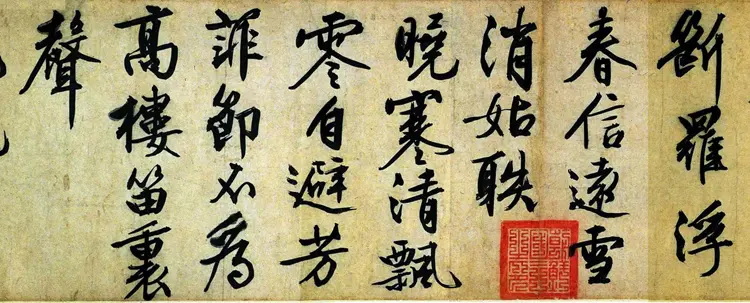 斷羅浮
春信遠雪
消姑射
曉寒清飄
零自避芳
菲節不為
高樓笛裏
聲